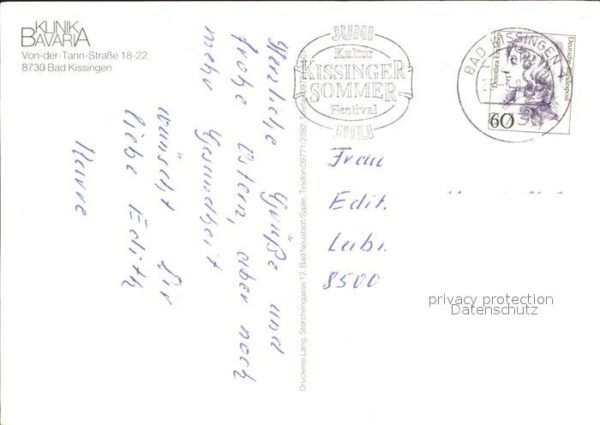 KLINIK
BAVARIA
Von-der-Tann-Straße 18-22
8730 Bad Kissingen
JUNI
Kultur
KISSINGER
SOMMER
Festival
JULI
BAD KISSINGEN 1
60
Herzliche Grüße und
frohe Ostern, aber noch
mehr Gesundheit
wünscht Dir
liebe Edith
Druckerei Lang, Storchengasse 12, Bad Neustadt/Saale, Telefon 09771/2382
Frau
Edit
8500
privacy protection
Datenschutz